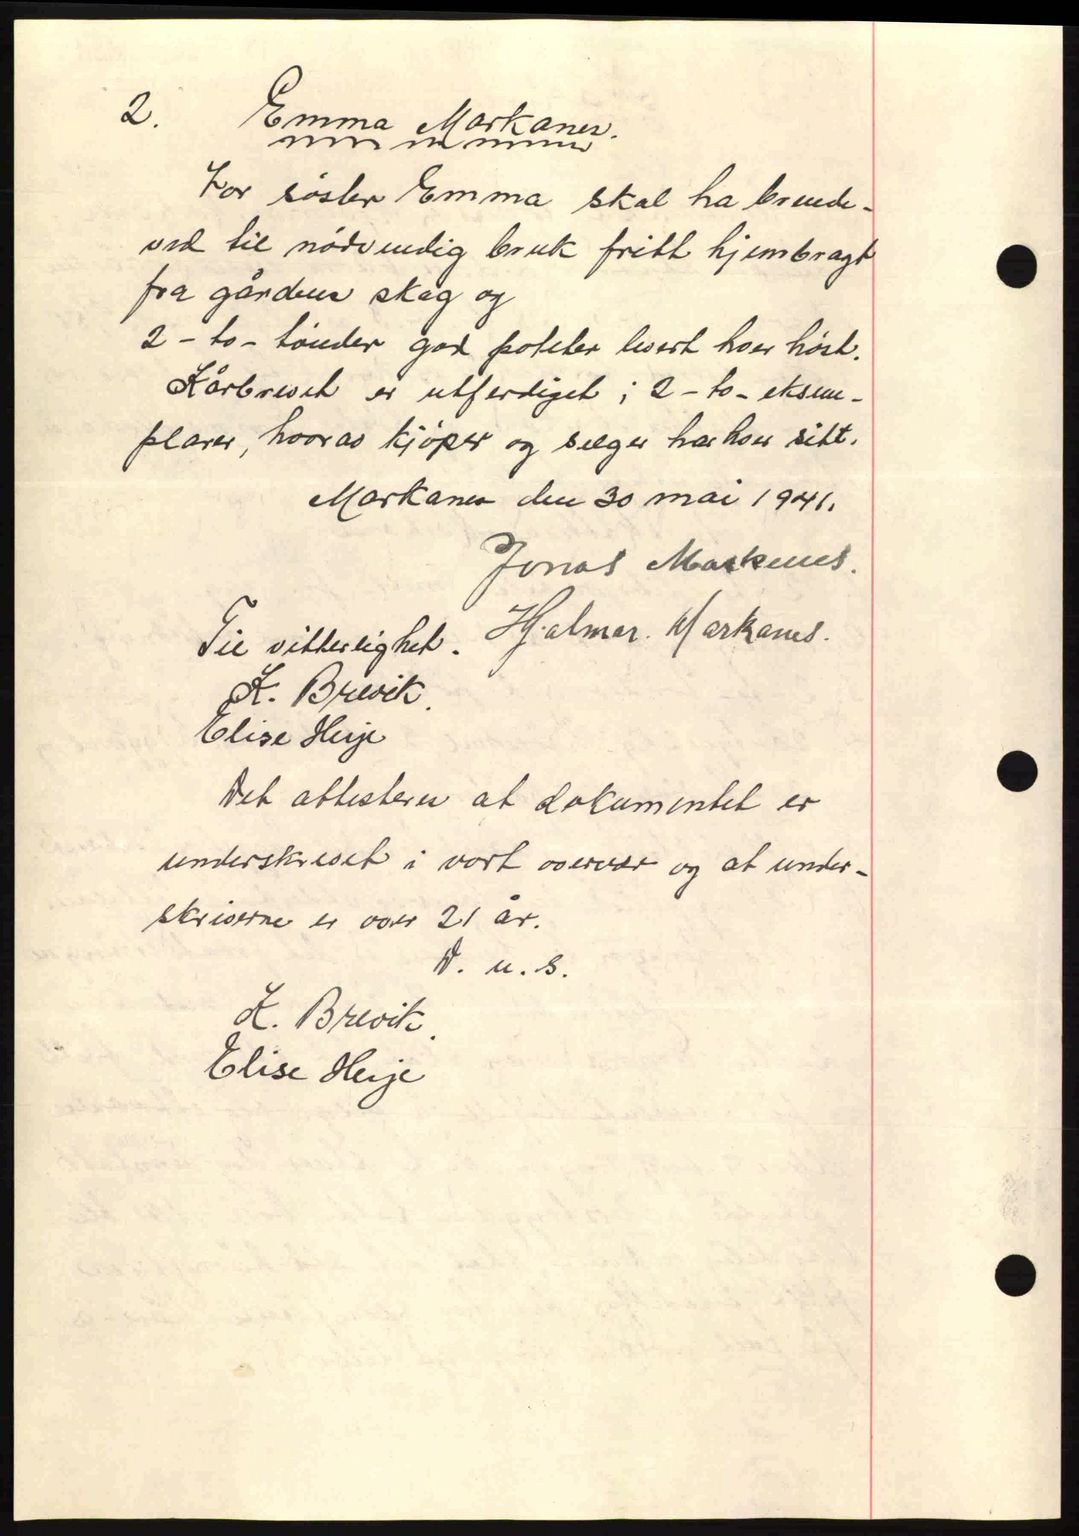 2. Emma Markanes.
Vor søster Emma skal ha brende-
ved til nødvendig bruk fritt hjembragt
fra gårdens skog og
2 - to - tønder god poteter levert hver høst.
Kårbrevet er utferdiget i 2 - to - eksem-
plarer, hvorav kjøper og selger har hver sitt.
Markanes den 30 mai 1941.
Jonas Markenes.
Til vitterlighet. Hjalmar. Markanes.
K. Brevik.
Elise Heije
Det attesteres at dokumentet er
underskrevet i vort overvær og at under-
skriverne er over 21 år.
D. u. s.
K. Brevik.
Elise Heije